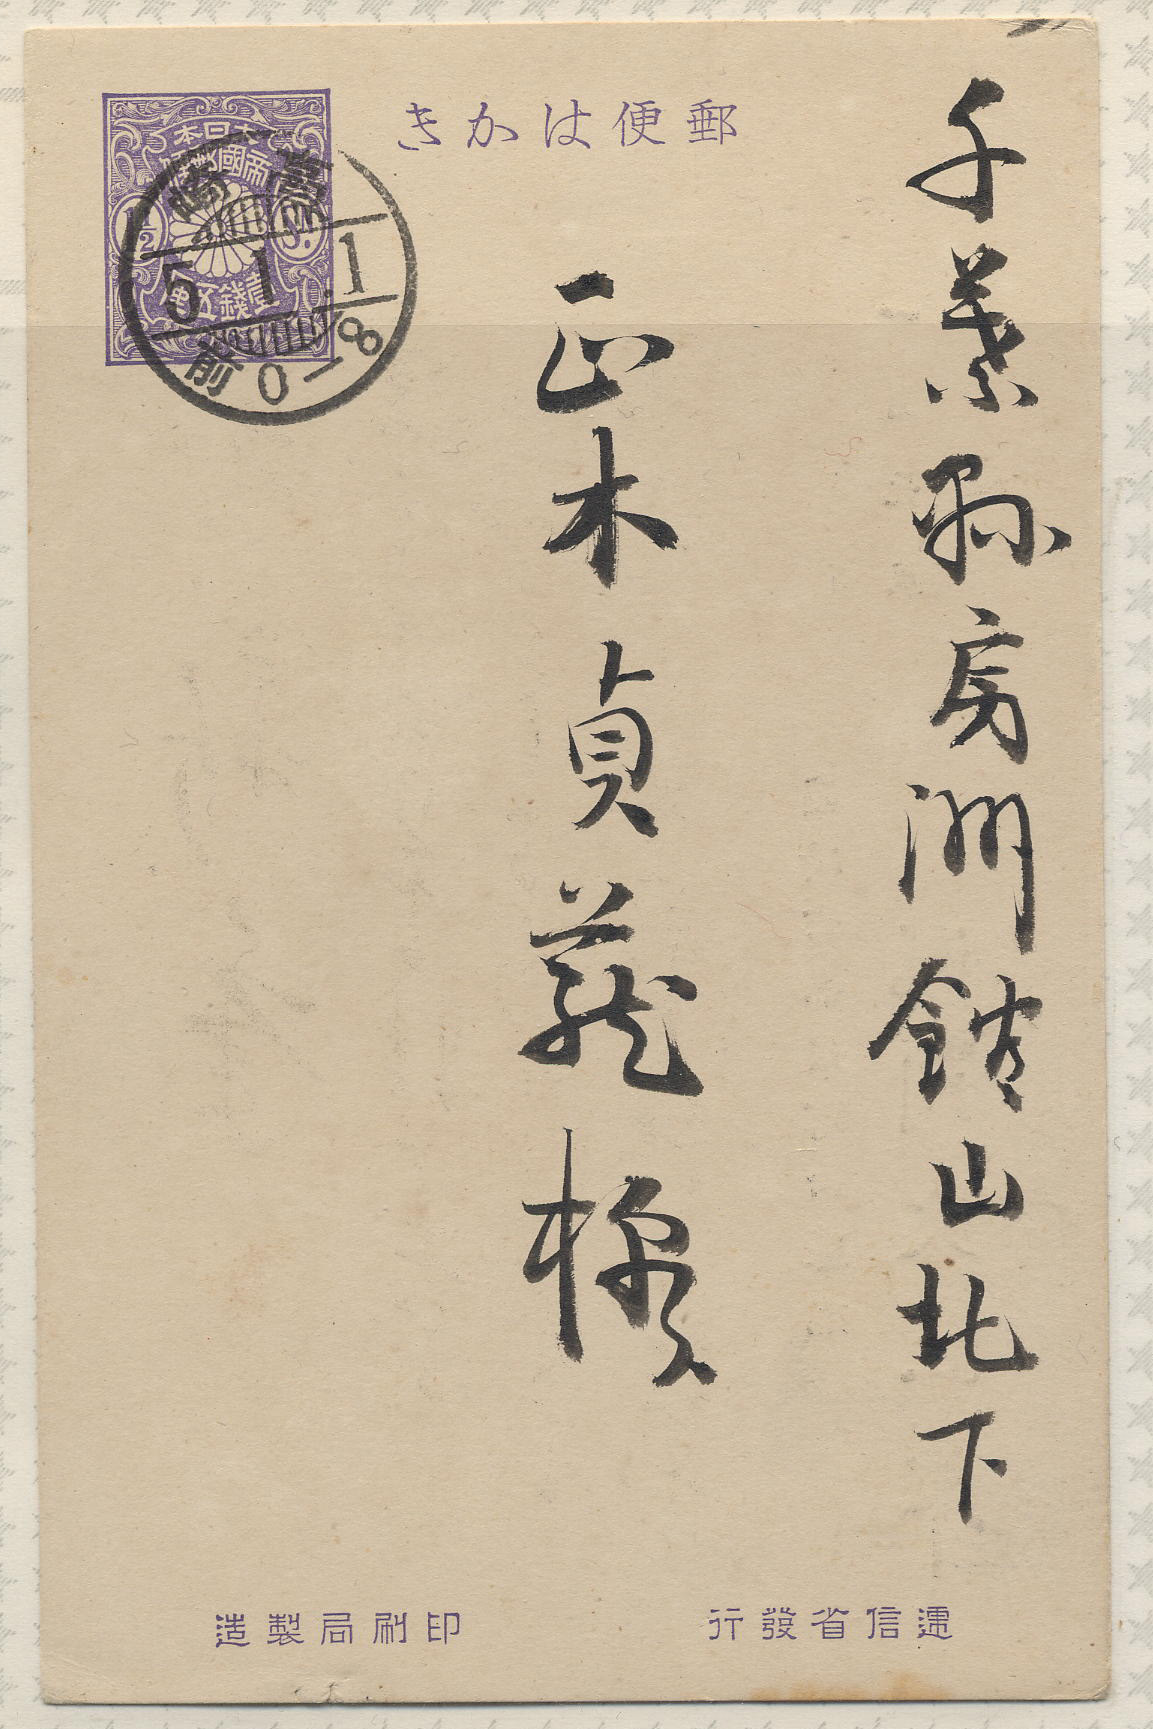 郵便はかき
大日本
帝國郵便
1½
Sn.
壹錢五厘
高崎
5.1.1
前0-8
千葉縣房洲館山北下
正木貞藏様
遞信省發行
印刷局製造